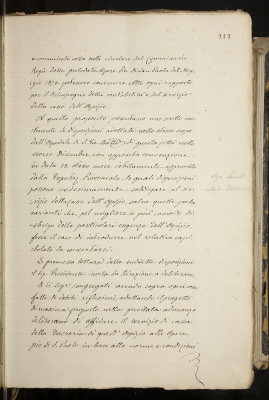 111.
e comunicato colla nota circolare del Commissario
Regio delle prelodate Opere Pie di San Paolo del Mag-
gio 1879 potessero convenire sotto ogni rapporto
per il disimpegno della contabilità e del servizio
della cassa dell'Ospizio.
A questo proposito
di disposizioni adottate nello stesso scopo
dall'Ospedale di S.
scorso Dicembre con apposita convenzione
in data 18 stesso mese debitamente approvata
dalla Deputaz. Provinciale, le quali disposizioni
possono medesimamente soddisfare al ser-
vizio della cassa dell'Ospizio, salvo quelle poche
varianti che, pel migliore e più comodo di-
sbrigo delle particolari esigenze dell'Ospizio,
fosse il caso di introdurre nel relativo capi-
tolato da concertarsi.
E premessa lettura delle suddette disposizioni
il Sig. Presidente invita la Direzione a deliberare,
E li Sigri congregati avendo sopra ogni co-
sa fatte le debite riflessioni, adottando il progetto
di massima proposto nella presdata adunanza
deliberano di affidare il servizio di cassa
della Tesoreria di quest'Ospizio alle Opere
pie di S. Paolo in base alle norme e condizioni